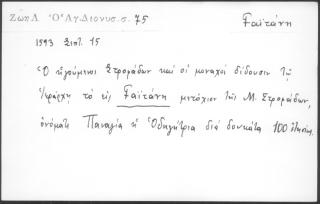 Ζωη Λ. Ὁ Ἁγ. Διονυσ. σ. 75
Γαϊτάνη
1593 Σεπτ. 15
Ὁ ἡγούμενος Στροφάδων καὶ οἱ μοναχοὶ δίδουσιν τῷ
τὸ εἰς Γαϊτάνη μετόχιον τῆς Μ. Στροφάδων,
ὀνόματι Παναγία ἡ Ὁδηγήτρια διὰ δουκάτα 100 ἐτησίως.